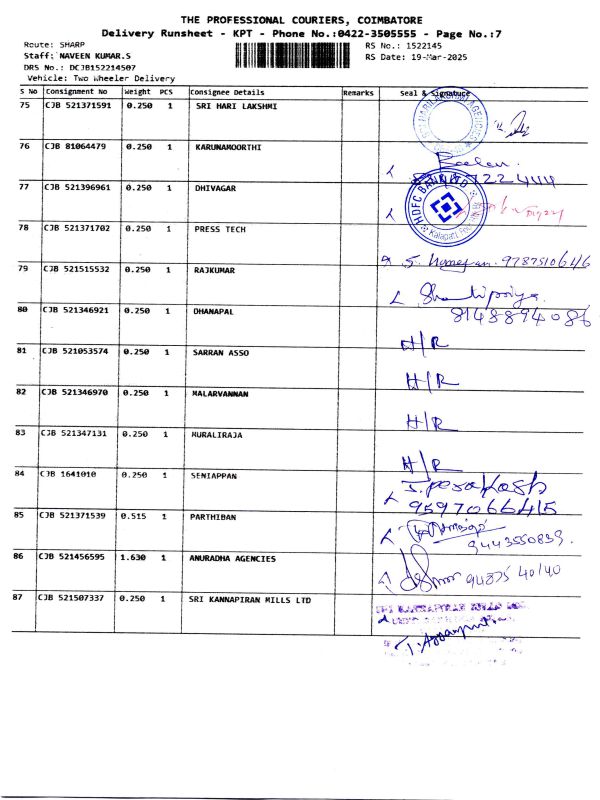 THE PROFESSIONAL COURIERS, COIMBATORE
Delivery Runsheet - KPT - Phone No.:0422-3505555 - Page No.:7
Route: SHARP
RS No.: 1522145
Staff: NAVEEN KUMAR.S
RS Date: 19-Mar-2025
DRS No.: DCJB152214507
Vehicle: Two Wheeler Delivery
S No Consignment No Weight PCS Consignee Details Remarks Seal & Signature
75 CJB 521371591 0.250 1 SRI HARI LAKSHMI
76 CJB 81064479 0.250 1 KARUNAMOORTHI
77 CJB 521396961 0.250 1 DHIVAGAR
HDFC BANK LTD
78 CJB 521371702 0.250 1 PRESS TECH
79 CJB 521515532 0.250 1 RAJKUMAR
80 CJB 521346921 0.250 1 DHANAPAL 8148894086
81 CJB 521053574 0.250 1 SARRAN ASSO H/R
82 CJB 521346970 0.250 1 MALARVANNAN H/R
83 CJB 521347131 0.250 1 MURALIRAJA H/R
84 CJB 1641010 0.250 1 SENIAPPAN H/R
9597066415
85 CJB 521371539 0.515 1 PARTHIBAN
9443550839.
86 CJB 521456595 1.630 1 ANURADHA AGENCIES 94875 40140
87 CJB 521507337 0.250 1 SRI KANNAPIRAN MILLS LTD